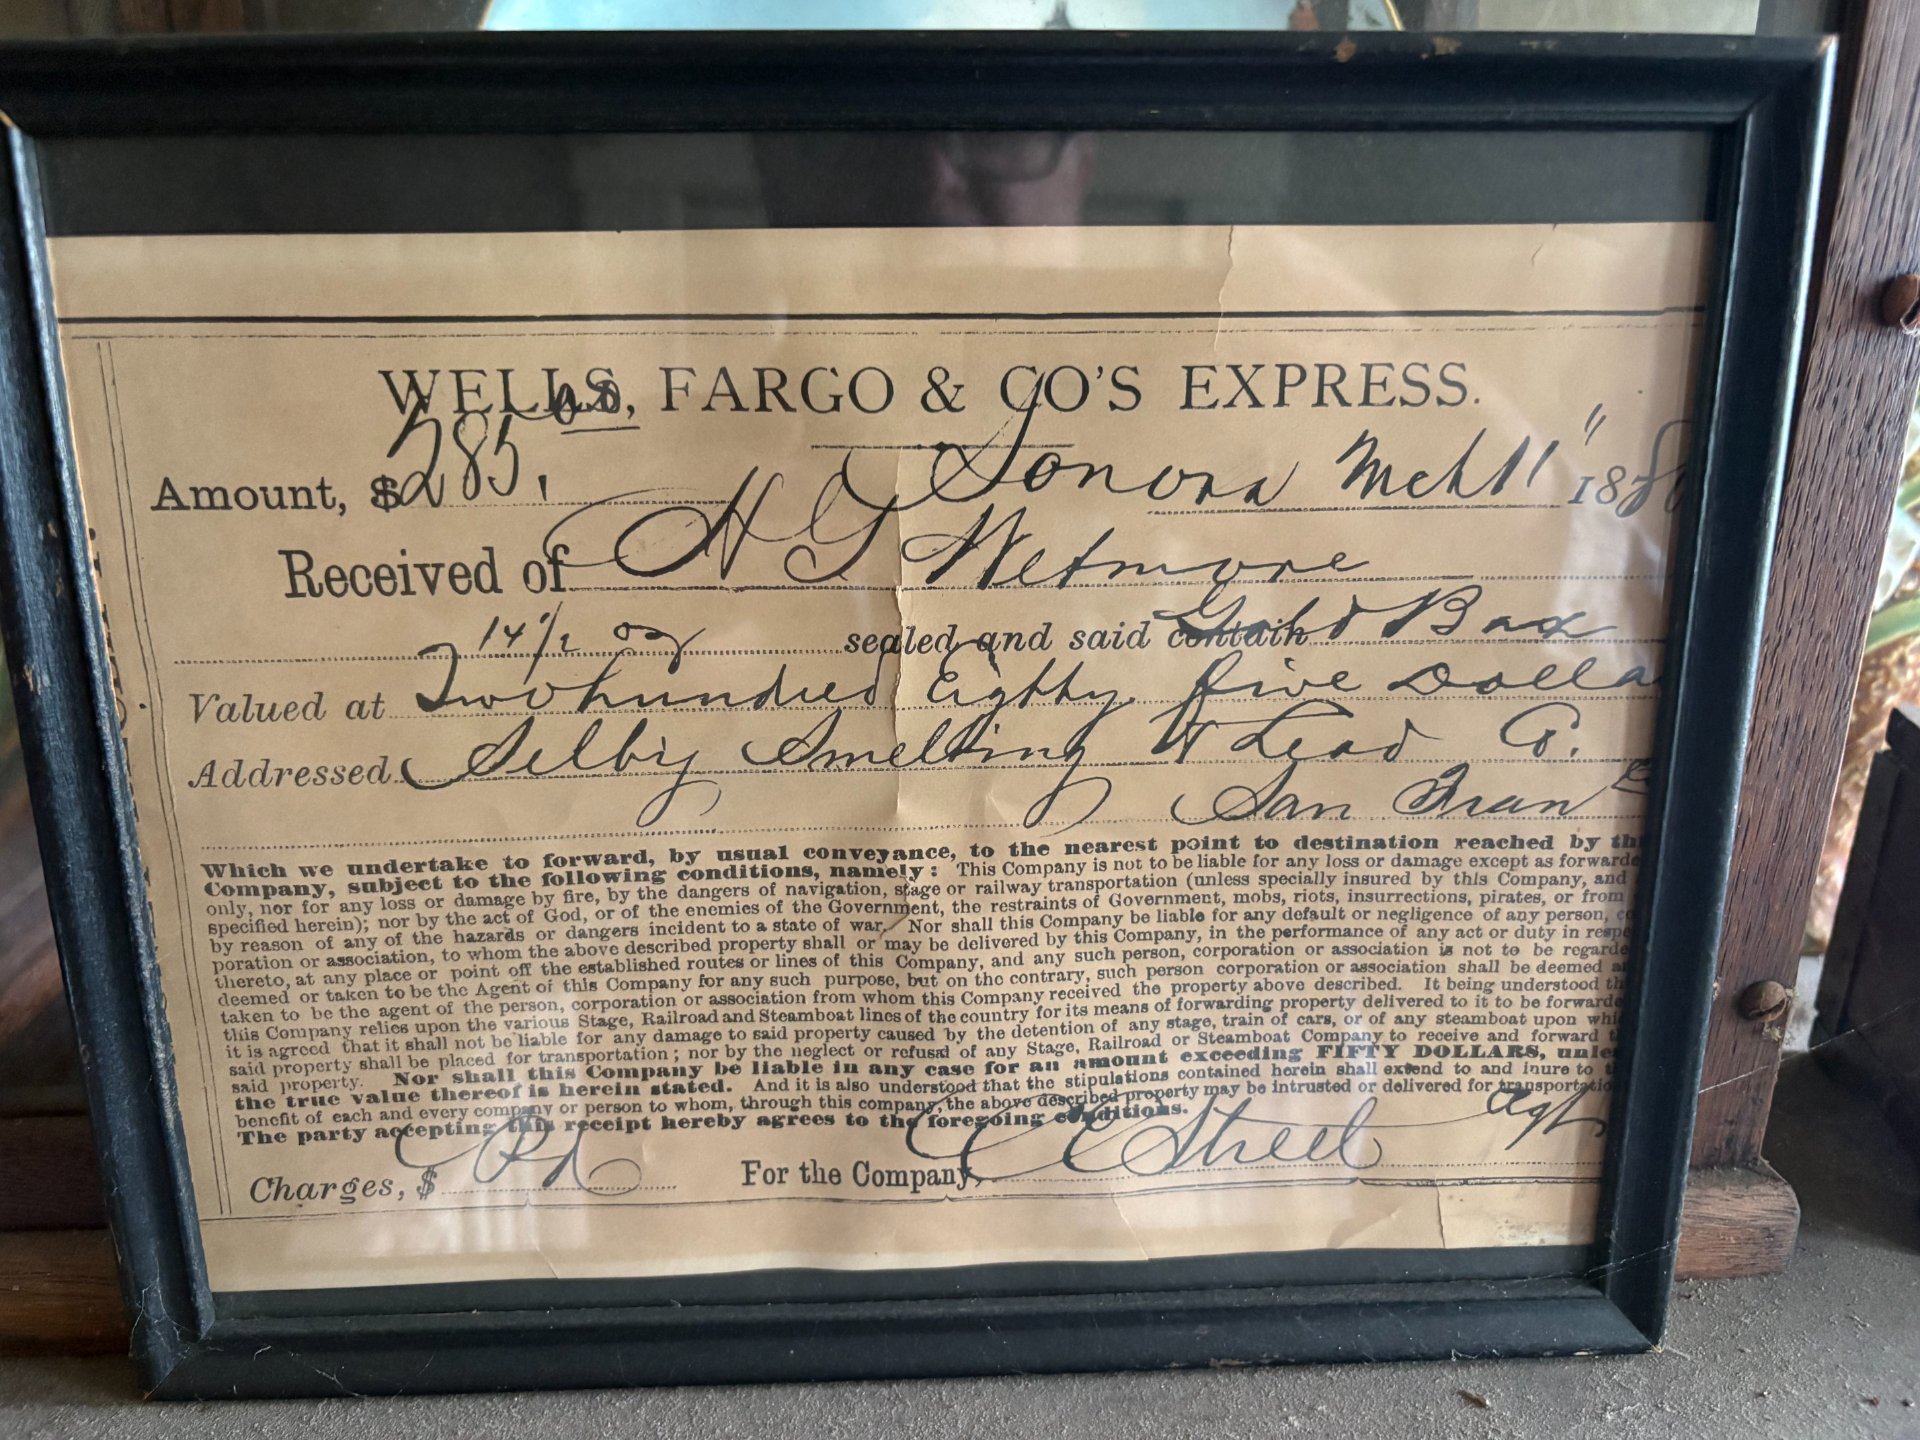 WELLS, FARGO & CO'S EXPRESS.
Amount, $285.00 Sonora Mch 11" 188
Received of H G Wetmore
14 1/2 oz sealed and said contain Gold Box
Valued at Two hundred Eighty five Dolla
Addressed Selby Smelting & Lead Co.
San Fran
Which we undertake to forward, by usual conveyance, to the nearest point to destination reached by th
Company, subject to the following conditions, namely: This Company is not to be liable for any loss or damage except as forwarde
only, nor for any loss or damage by fire, by the dangers of navigation, stage or railway transportation (unless specially insured by this Company, and
specified herein); nor by the act of God, or of the enemies of the Government, the restraints of Government, mobs, riots, insurrections, pirates, or from
by reason of any of the hazards or dangers incident to a state of war. Nor shall this Company be liable for any default or negligence of any person, co
poration or association, to whom the above described property shall or may be delivered by this Company, in the performance of any act or duty in respe
thereto, at any place or point off the established routes or lines of this Company, and any such person, corporation or association is not to be regarde
deemed or taken to be the Agent of this Company for any such purpose, but on the contrary, such person corporation or association shall be deemed a
taken to be the agent of the person, corporation or association from whom this Company received the property above described. It being understood th
this Company relies upon the various Stage, Railroad and Steamboat lines of the country for its means of forwarding property delivered to it to be forwarde
it is agreed that it shall not be liable for any damage to said property caused by the detention of any stage, train of cars, or of any steamboat upon whic
said property shall be placed for transportation; nor by the neglect or refusal of any Stage, Railroad or Steamboat Company to receive and forward t
said property. Nor shall this Company be liable in any case for an amount exceeding FIFTY DOLLARS, unle
the true value thereof is herein stated. And it is also understood that the stipulations contained herein shall extend to and inure to t
benefit of each and every company or person to whom, through this company, the above described property may be intrusted or delivered for transportatio
The party accepting this receipt hereby agrees to the foregoing conditions.
Charges, $ Pd For the Company, C C Street Agt